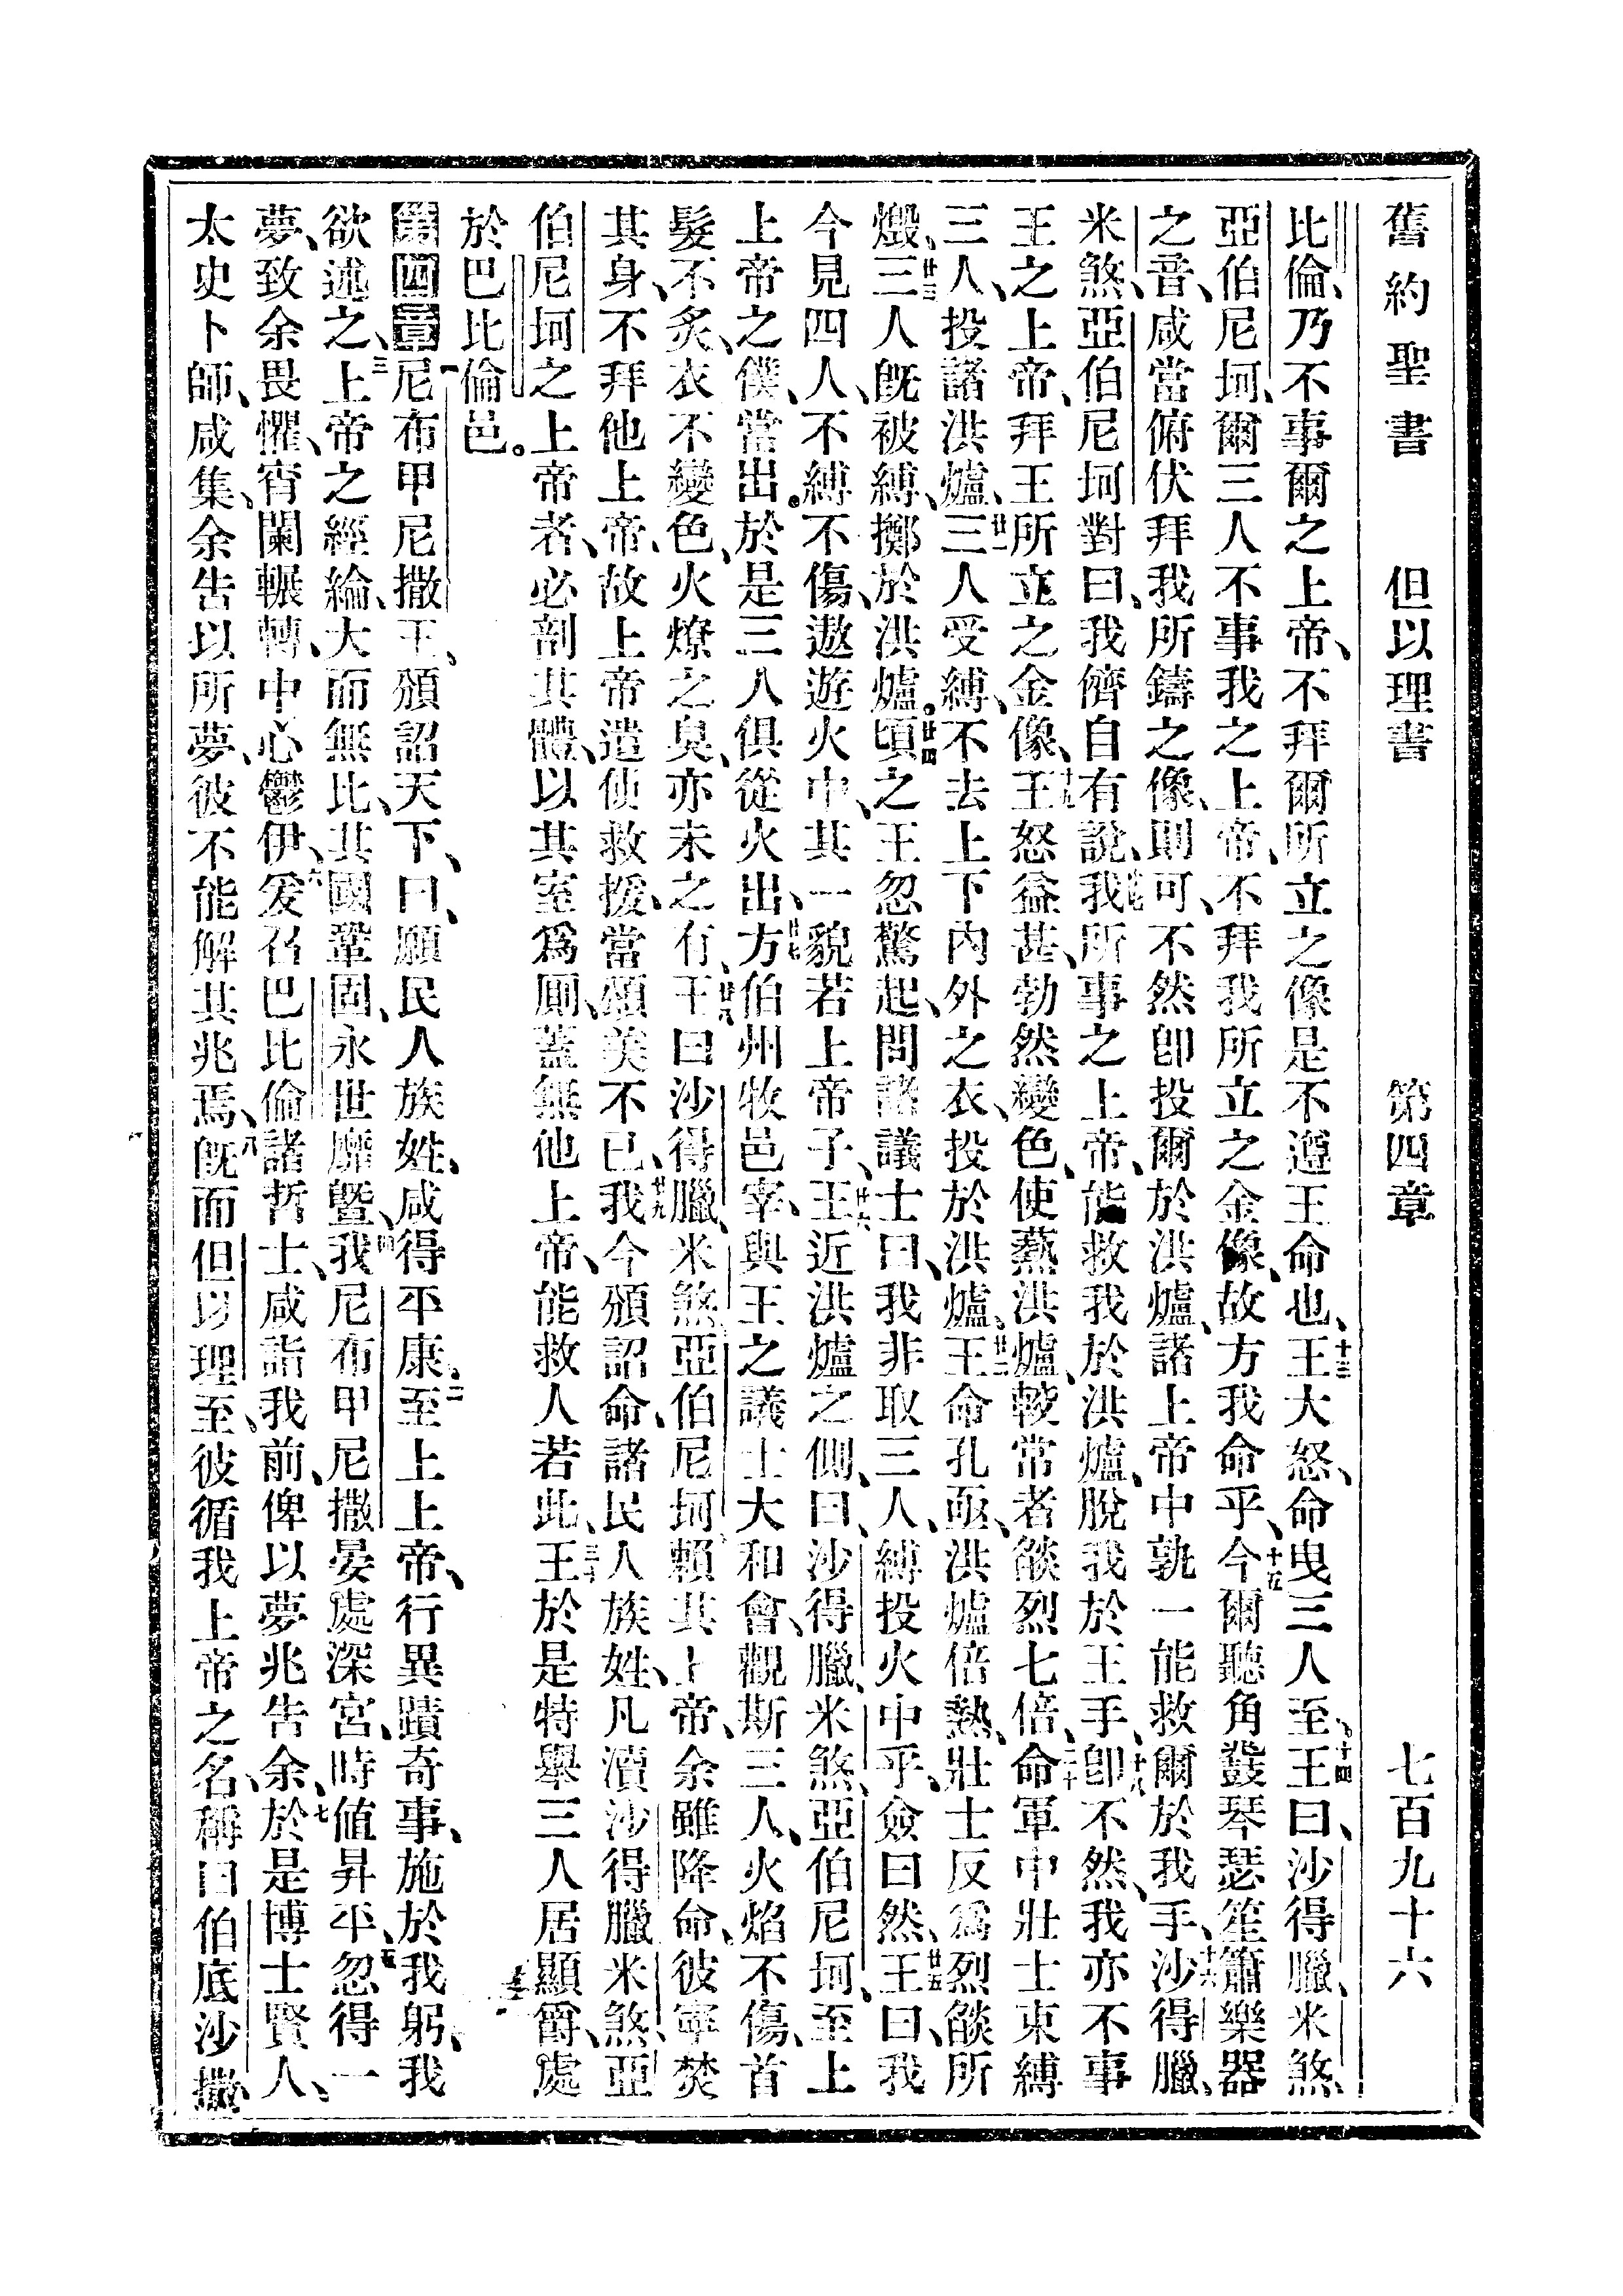 舊約聖書 但以理書 第四章 七百九十六
比倫、乃不事爾之上帝、不拜爾所立之像是不遵王命也、十三王大怒、命曳三人至、十四王曰、沙得臘、米煞、
亞伯尼坷、爾三人不事我之上帝、不拜我所立之金像、故方我命乎、十五今爾聽角鼗琴瑟笙簫樂器
之音、咸當俯伏拜我所鑄之像、則可、不然卽投爾於洪爐、諸上帝中孰一能救爾於我手、十六沙得臘、
米煞、亞伯尼坷對曰、我儕自有說、十七我所事之上帝、能救我於洪爐、脫我於王手、十八卽不然、我亦不事
王之上帝、拜王所立之金像、十九王怒益甚、勃然變色、使爇洪爐、較常者燄烈七倍、二十命軍中壯士束縛
三人、投諸洪爐、廿一三人受縛、不去上下內外之衣、投於洪爐、廿二王命孔亟、洪爐倍熱、壯士反爲烈燄所
燬、廿三三人旣被縛、擲於洪爐。廿四頃之王忽驚起、問諸議士曰、我非取三人、縛投火中乎、僉曰然、廿五王曰、我
今見四人、不縛不傷、遨遊火中、其一貌若上帝子、廿六王近洪爐之側、曰、沙得臘、米煞、亞伯尼坷、至上
上帝之僕、當出。於是三人俱從火出、廿七方伯州牧邑宰、與王之議士大和會、觀斯三人、火焰不傷、首
髮不炙、衣不變色、火燎之臭、亦未之有、廿八王曰沙得臘、米煞亞伯尼坷、賴其上帝、余雖降命、彼寧焚
其身、不拜他上帝、故上帝遣使救援、當頌美不已、廿九我今頒詔命、諸民人族姓、凡瀆沙得臘米煞、亞
伯尼坷之上帝者、必剖其體、以其室爲厠、蓋無他上帝、能救人若此、三十王於是特舉三人居顯爵、處
於巴比倫邑。
第四章 一尼布甲尼撒王、頒詔天下、曰、願民人族姓、咸得平康、二至上上帝、行異蹟奇事、施於我躬、我
欲述之、三上帝之經綸、大而無比、其國鞏固、永世靡曁、四我尼布甲尼撒晏處深宮、時値昇平、五忽得一
夢、致余畏懼、宵闌輾轉、中心鬱伊、六爰召巴比倫諸哲士、咸詣我前、俾以夢兆告余、七於是博士賢人、
太史卜師、咸集、余告以所夢、彼不能解其兆焉、八旣而但以理至、彼循我上帝之名、稱曰伯底沙撒、